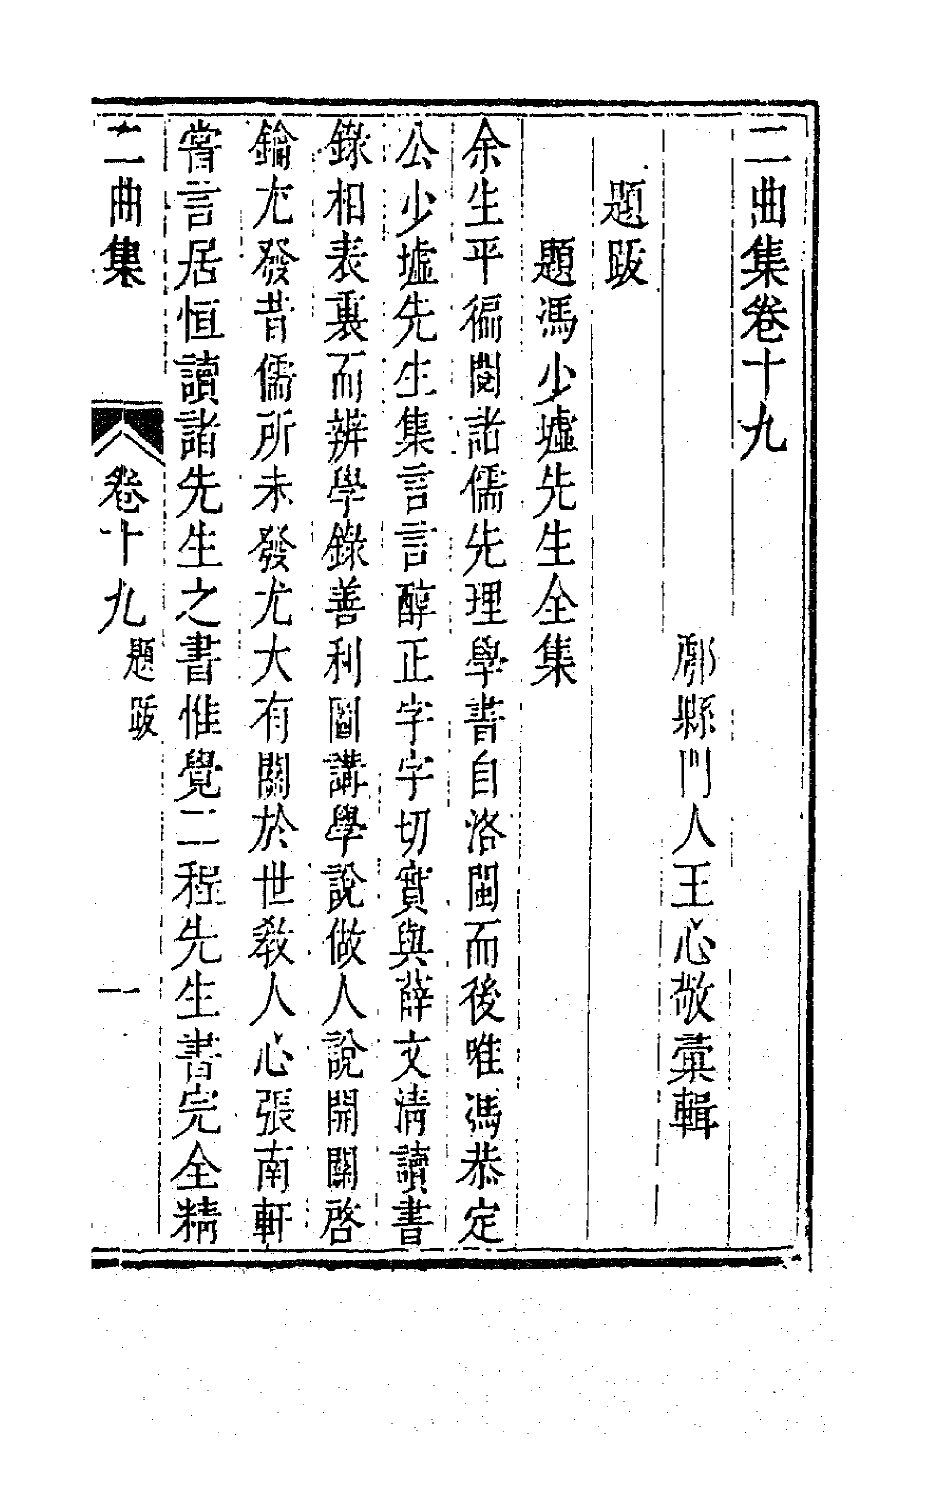 二曲集卷十九
鄠縣門人王心敬彚輯
題跋
題馮少墟先生全集
余生平徧閱諸儒先理學書自洛閩而後唯馮恭定
公少墟先生集言言醇正字字切實與薛文清讀書
錄相表裏而辨學錄善利圖講學說做人說開關啓
鑰尤發昔儒所未發尤大有關於世敎人心張南軒
嘗言居恒讀諸先生之書惟覺二程先生書完全精
二曲集
卷十九
題跋
一